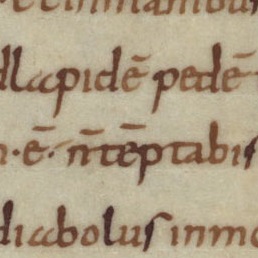 dlapidē pedē
·ē· n̄tēptabis
diabolus inmo